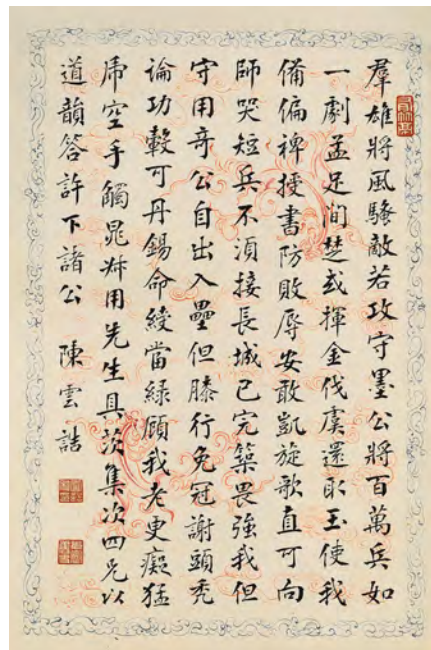 羣雄將風騷敵若攻守墨公將百萬兵如
一劇孟足間楚或揮金伐虞還取玉使我
備偏裨授書防敗辱安敢凱旋歌直可向
師哭短兵不湏接長城已完築畏強我但
守用奇公自出入壘但膝行免冠謝頭禿
論功轂可丹錫命綬當綠顧我老更癡猛
虎空手觸晁叔用先生具茨集次四兄以
道韻答許下諸公 陳雲誥